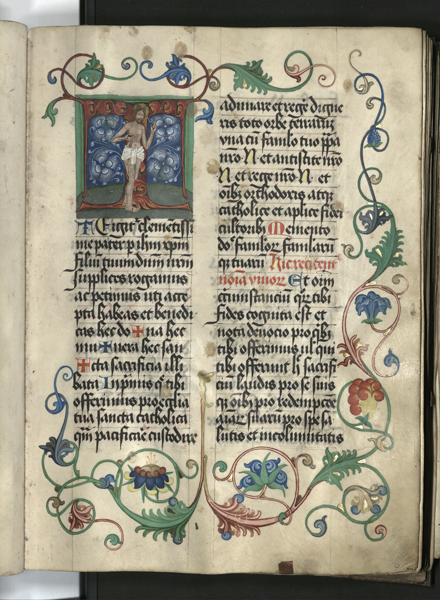 T E igit˜ clementissi
me pater p ihm xpm
filiū tuū dnm nrm
supplices rogamus
ac petimus uti acce
pta habeas et benedi
cas hec do ✠ na hec
mu ✠ nera hec san
✠ cta sacrificia illi
bata Inprimis q̄ tibi
offerimus pro ecclīa
tua sancta catholica
quā pacificare custodire
adunare et regere digne
ris toto orbe terrarum
vna cū famlo tuo ppa
nro N et antistite nro
N et rege nro N et
oībz orthodoxis atqz
catholice et aplice fidei
cultoribz Memento
dn̄e famlor famlarū
qz tuarū Hic recitent
noīa viuor Et oīm
circumstanciū qr tibi
fides cognita est et
nota deuotio pro qibz
tibi offerimus ul qui
tibi offerunt h sacrifi
ciū laudis pro se suis
qz oībz pro redempcōe
aīarz suarū pro spe sa
lutis et incolumitatis